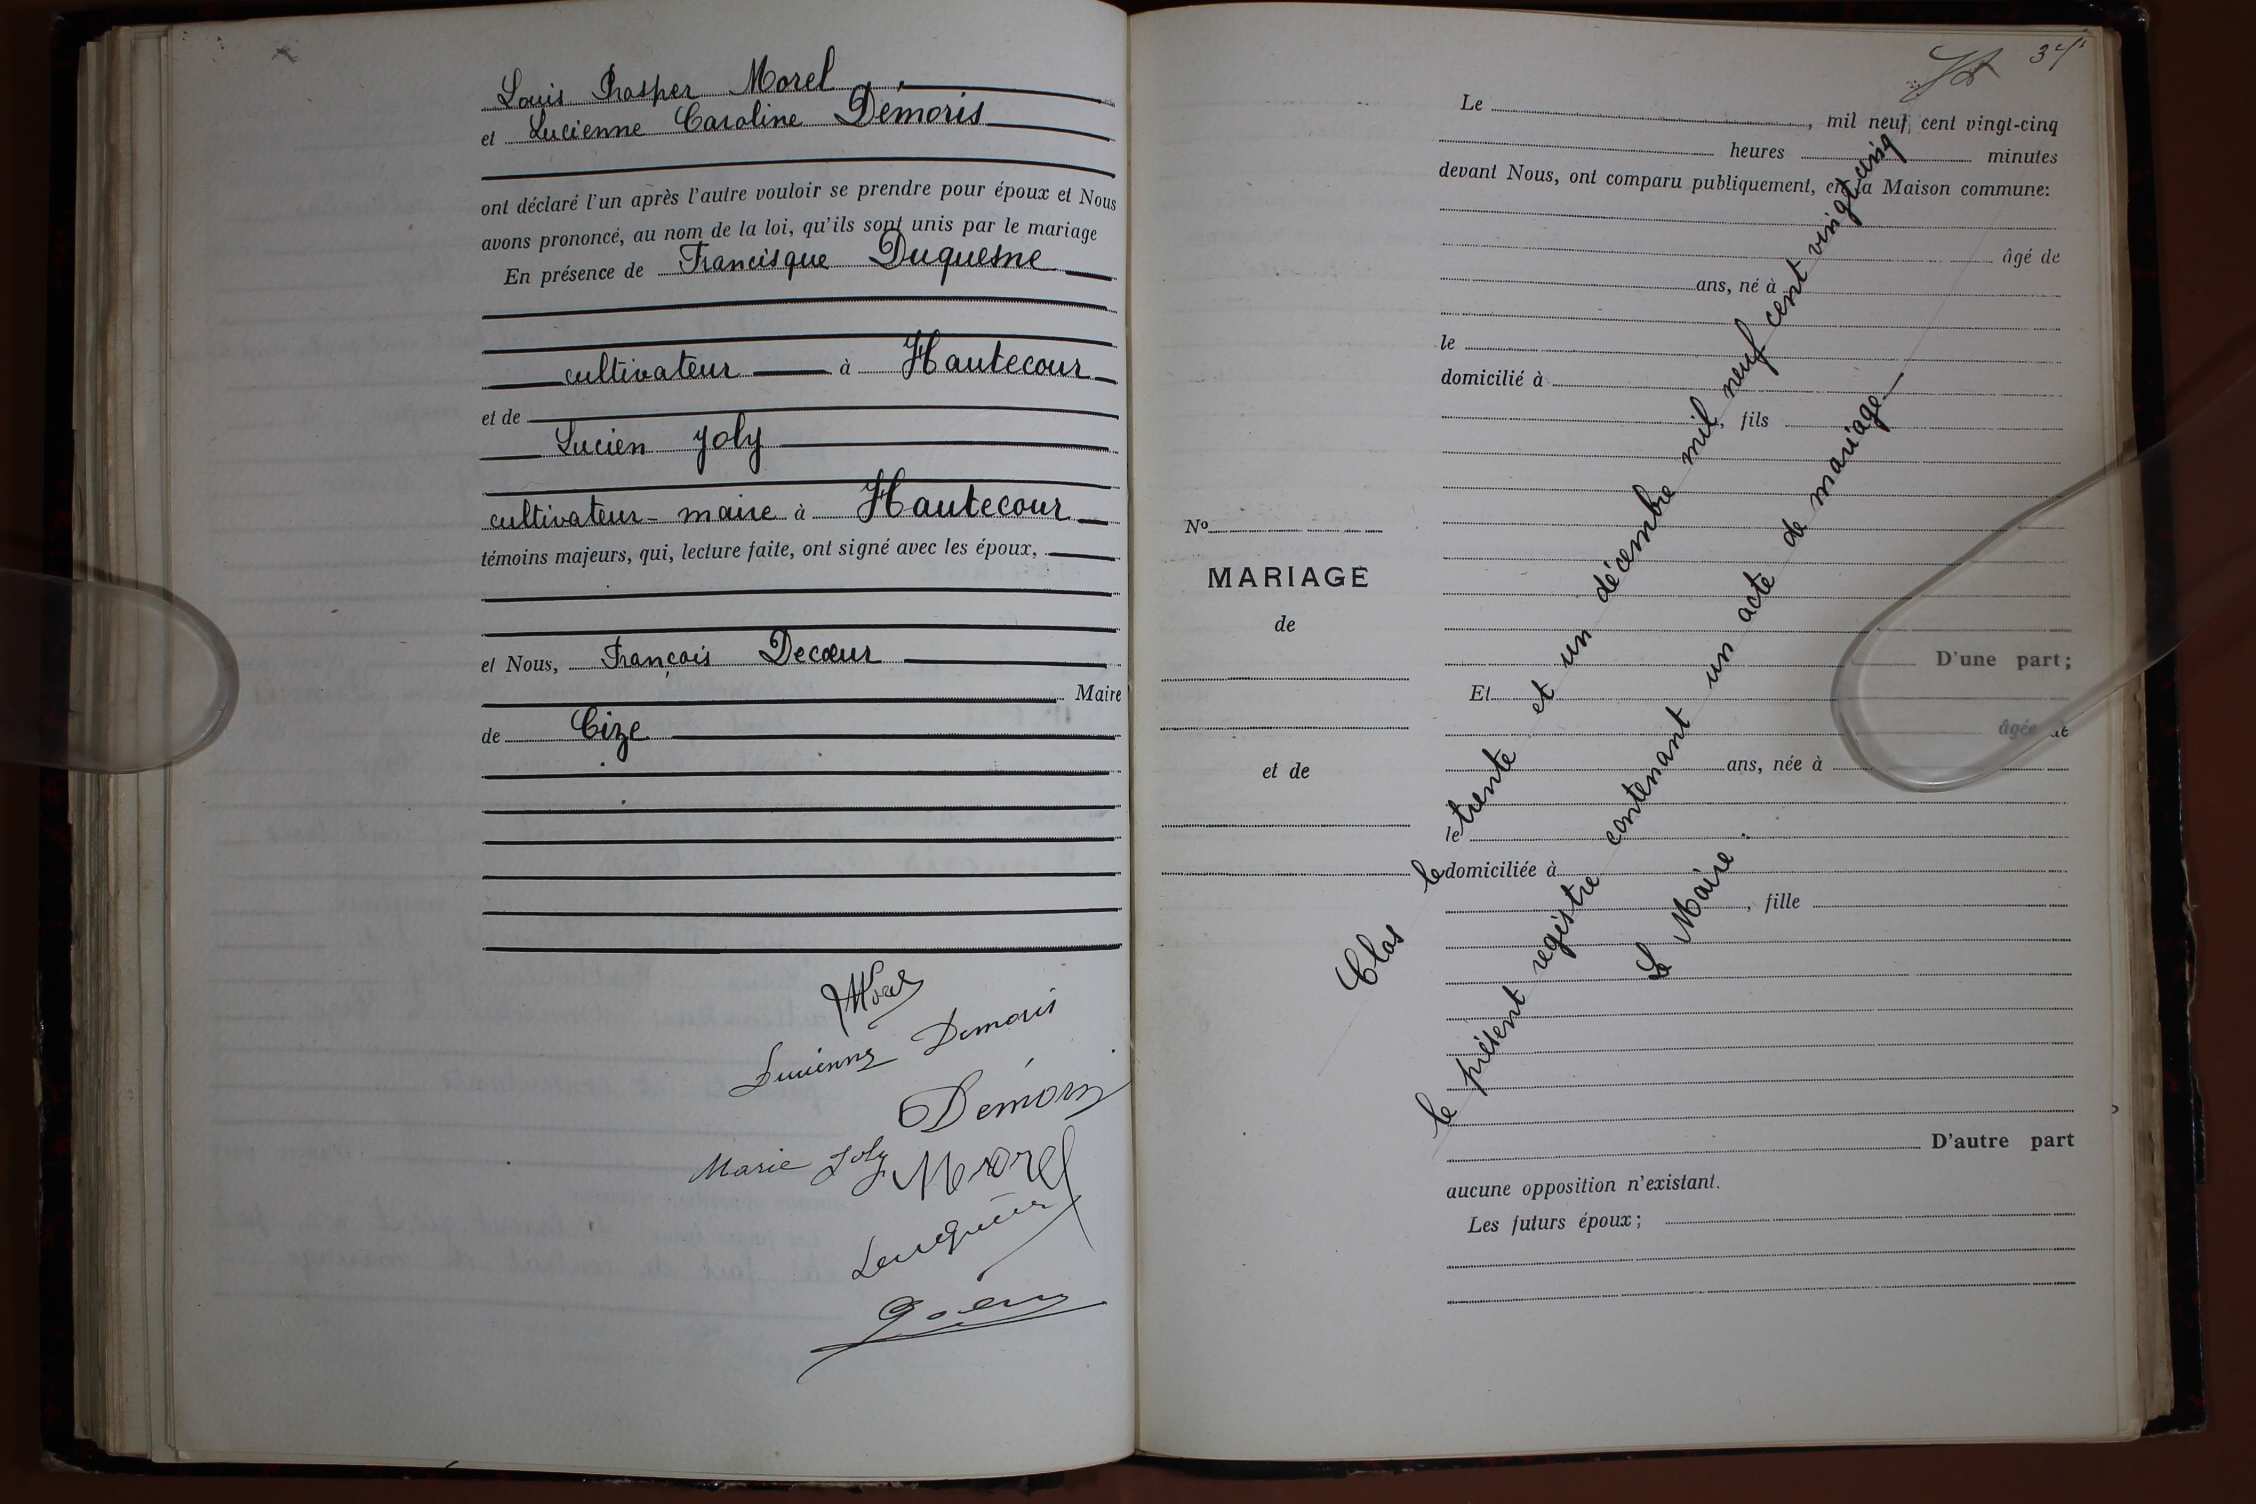 Louis Prosper Morel
et Lucienne Caroline Démoris
ont déclaré l'un après l'autre vouloir se prendre pour époux et Nous
avons prononcé, au nom de la loi, qu'ils sont unis par le mariage
En présence de Francisque Duquesne
cultivateur à Hautecour
et de
Lucien Joly
cultivateur-maire à Hautecour
témoins majeurs, qui, lecture faite, ont signé avec les époux,
et Nous, François Decœur
Maire
de Cize
Morel
Lucienne Demoris
Démoris
Marie Joly Morel
34
Le , mil neuf cent vingt-cinq
heures minutes
devant Nous, ont comparu publiquement, en la Maison commune:
âgé de
ans, né à
le
domicilié à
, fils
No
MARIAGE
de
et de
D'une part;
Et
âgée
ans, née à
le
domiciliée à
, fille
D'autre part
aucune opposition n'existant.
Les futurs époux;
Clos le trente et un décembre mil neuf cent vingt cinq
le présent registre contenant un acte de mariage
Le Maire.